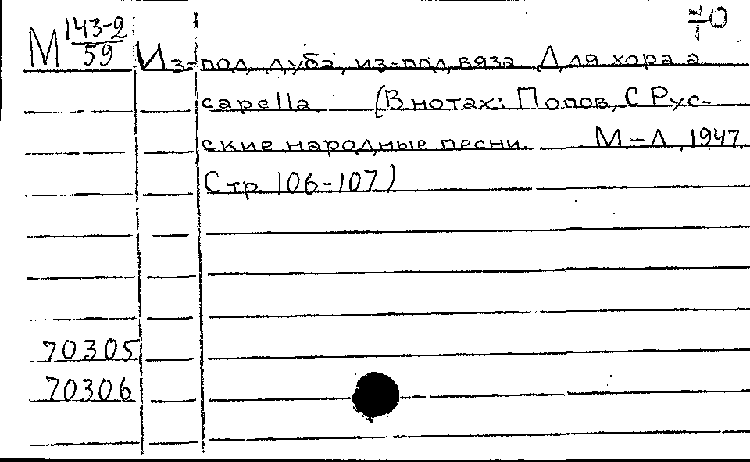 М 143-2
59
Из-под дуба, из-под вяза Для хора a
capella (В нотах: Попов, С Рус-
ские народные песни. М-Л, 1947
Стр 106-107)
70305
70306